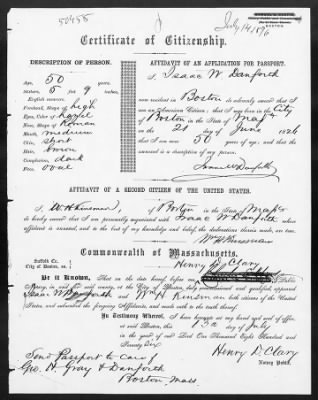 50458
July 14, 1876
Certificate of Citizenship.
DESCRIPTION OF PERSON.
Age, 50 years.
Stature, 5 feet 9 inches,
English measure.
Forehead, Shape of high
Eyes, Color of hazel
Nose, Shape of Roman
Mouth, medium
Chin, short
Hair, brown
Complexion, dark
Face, oval
AFFIDAVIT OF AN APPLICATION FOR PASSPORT.
I, Isaac W Danforth
now resident in Boston do solemnly swear that I
am an American Citizen; that I was born in the City
of Boston in the State of Mass
on the 21 day of June 1826
that I am now 50 years of age; and that the
annexed is a description of my person.
Isaac W Danforth
AFFIDAVIT OF A SECOND CITIZEN OF THE UNITED STATES.
I, W H Kinsman of Boston in the State of Mass
do hereby swear that I am personally acquainted with Isaac W Danforth whose
affidavit is annexed, and to the best of my knowledge and belief, the declarations therein made, are true.
Wm H Kinsman
Commonwealth of Massachusetts.
Suffolk Co.
City of Boston, ss.
Henry D. Clary
Be it Known, That on the day hereof before me, Public
Notary, in and for said county, at the City of Boston, duly commissioned and qualified, appeared
Isaac W Danforth and Wm H Kinsman are both citizens of the United
States, and subscribed the foregoing Affidavits, and made oath to the truth thereof.
In Testimony Whereof, I have hereunto set my hand and seal of office
at said Boston, this 13th day of July
in the year of our Lord One Thousand Eight Hundred and
Seventy Six
Henry D. Clary
Notary Public.
Send Passport to care of
Geo. H. Gray & Danforth
Boston, Mass.